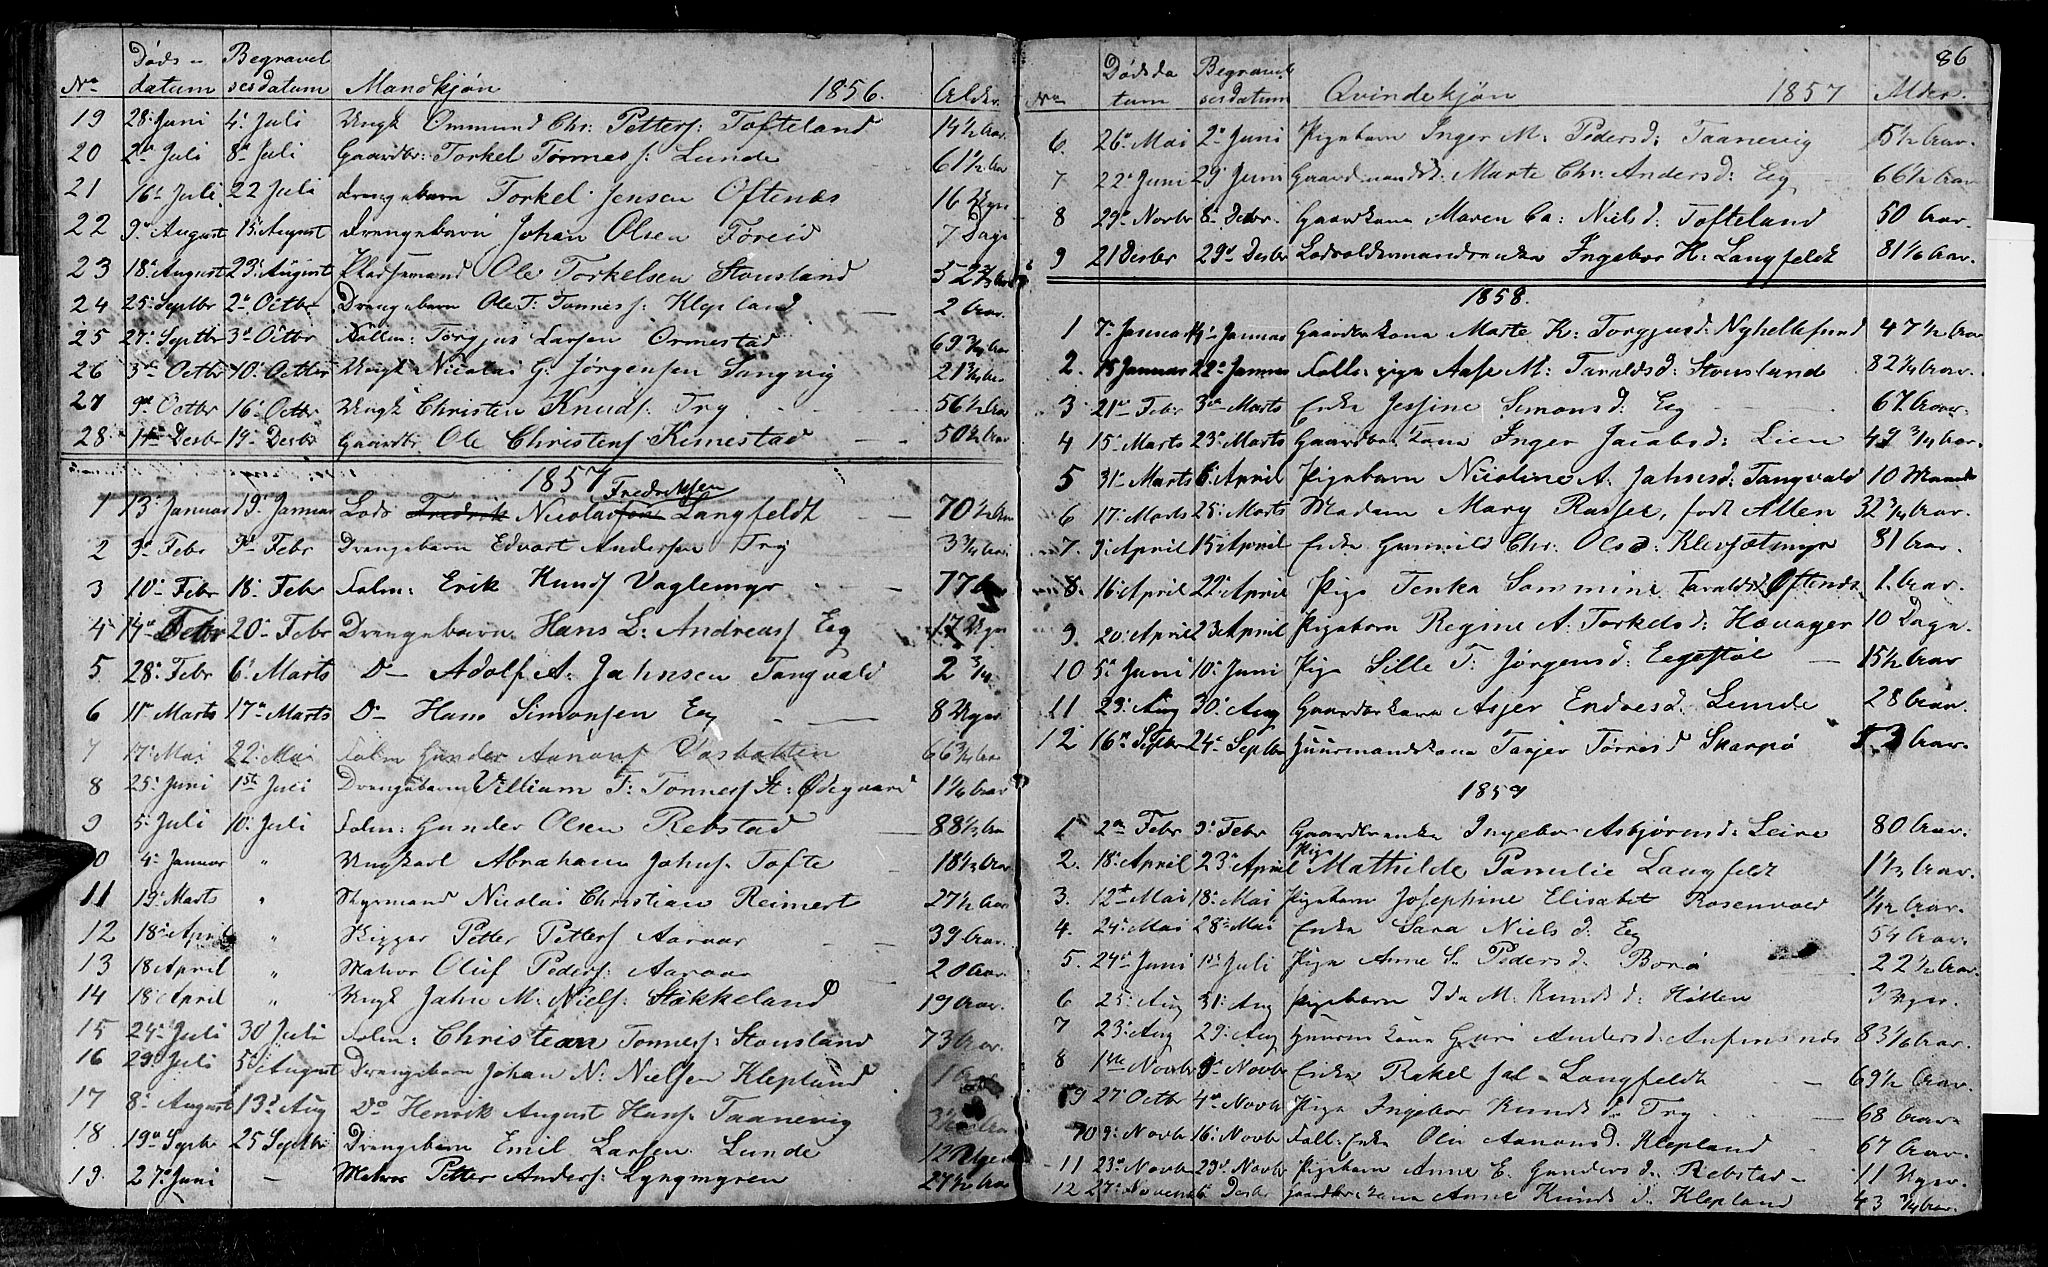 No Dødsdatum Begravelsesdatum Mandkjøn 1856. Alder.
19 28. Juni 4. Juli Ungk Ommund Chr: Petters: Tofteland 14 1/2 Aar
20 2. Juli 8. Juli Gaardbr: Torkel Tønness: Lunde 61 1/2 Aar
21 16. Juli 22 Juli Drengebarn Torkel Jensen Oftenæs 16 Uger
22 9. August 15. August Drengebarn Johan Olsen Føreid 7 Dage
23 18. August 23. August Pladsemand Ole Torkelsen Stousland
24 25. Septbr 2. Octbr Drengebarn Ole T: Tønness: Klepland — 2 Aar.
25 27. Septbr 3. Octbr Follm: Torgjus Larsen Ormestad 69 3/4 Aar
26 3. Octbr 10. Octbr Ungk: Nicolai G. Jørgensen Sangvig 21 3/4 Aar
27 9. Octbr 16. Octbr Ungk Christen Knuds: Try 56 1/2 Aar
28. 14. Desbr 19. Desbr Gaardbr Ole Christens Kimestad 50 1/2 Aar
1857
Fredriksen
1 13. Januar 19. Januar Lods Fredrik Nicolai Langfeldt — 70 1/2 Aar
2 3. Febr 9. Febr Drengebarn Edvart Andersen Try 3 3/4 Aar.
3 10. Febr 18. Febr Folm: Erik Knuds Vaglemyr — 77
4 14. Febr 20. Febr Drengebarn Hans L: Andreas Eeg 17 Uger
5 28. Febr 6. Marts Do Adolf A. Jahnsen Tangvald 2 3/4
6 11. Marts 17. Marts Do Hans Simonsen Eeg — 8 Uger
7 17. Mai 22. Mai Folm Gunder Aanons Vasbakken 66 3/4 Aar
8 25. Juni 1st Juli Drengebarn Villiam T: Tønness St: Ødegaard 1 1/6 Aar
9 5. Juli 10. Juli Folm: Gunder Olsen Rebstad — 88 1/3 Aar
10 4. Januar " Ungkarl Abraham Jahns: Tofte 18 1/3 Aar
11 19. Marts " Styrmand Nicolai Christian Reimert 27 1/2 Aar
12 18. April " Rigger Petter Petters Aaraas 39 Aar.
13 18 April " Matros Oluf Peders: Aaraas 20 Aar.
14 18. April " Ungk Jahn M. Niels: Støkkeland 19 Aar.
15 24. Juli 30 Juli Folm: Christean Tønness: Stousland 73 Aar.
16 29. Juli 5. August Drengebarn Johan N: Nielsen Klepland
17 8. August 13. Aug Do Henrik August Hans: Taanevig
18. 19. Septbr 25 Septbr Drengebarn Emil Larsen Lunde 12 Uger
19. 27. Juni — Matros Petter Anders: Lyngmyren 27 1/2 Aar
86
No Dødsdatum Begravelsesdatum Qvindekjøn 1857 Alder.
6. 26. Mai 2. Juni Pigebarn Inger M: Pedersd: Taanevig 5 1/2 Aar.
7 22. Juni 29. Juni Marte Chr: Andersd: Eeg 66 1/2 Aar
8 29. Novbr 6. Desbr. Gaardkona Maren Ca: Nielsd: Tofteland 50 Aar.
9 21 Desbr 29. Desbr Ingebor H: Langfeldt 81 1/6 Aar.
1858.
1 7. Januar 14. Januar Gaardbrkona Marte K: Torgjusd: Nyhellesund 47 1/2 Aar
2. 15 Januar 22. Januar Folls: pige Aase M: Taraldsd: Stousland 82 1/4 Aar.
3 21. Febr 3. Marts Enke Jessine Simonsd: Eeg 67 Aar.
4 15. Marts 23. Marts Gaardbr: kona Inger Jacobsd: Lien 49 3/4 Aar.
5 31. Marts 6. April Pigebarn Nicoline A. Jahnsd: Tangvald 10 Maaned
6 17. Marts 25. Marts Madam Mary Rasser, født Allen 32 3/4 Aar.
7. 9. April 15. April Enke Gunnild Chr. Olsd: Klevsætmyr 81 Aar.
8. 16. April 22. April Pige Tenka Sommine Taraldsd: Oftenæs 1. Aar.
9. 20. April 23. April Pigebarn Regine A. Torkelsd: Hævager 10 Dage.
10 5. Juni 10. Juni Pige Sille T. Jørgensd: Eegestøl — 15 1/2 Aar
11 23. Aug 30. Aug Gaardbrkona Asjer Endresd: Lunde 28 Aar.
12 16. Septbr 24. Septbr Huusmandskona Taajer Tørresd Skarpø 53 Aar.
1859
1 2. Febr 9. Febr Gaardbrenke Ingebor Asbjørnsd: Leire 80 Aar.
2. 18. April 23. April Pige Mathilde Pamilie Langfeldt 1 1/3 Aar.
3. 12. Mai 18. Mai Pigebarn Josephine Elisabet Rosenvold 1/12 Aar.
4. 24. Mai 28. Mai Enke Sara Nielsd: Eeg 54 Aar.
5. 24. Juni 1st Juli Pige Anne S. Pedersd. Borø 22 1/2 Aar.
6 25. Aug 31. Aug Pigebarn Ida M. Knudsd: Holten 3 Uger.
7 23. Aug 29. Aug kona Guri Andersd: 83 1/6 Aar.
8 1ste Novbr 8. Novbr Enke Rakel Jal— Langfeldt — 69 1/2 Aar.
9 27. Octbr 4. Novbr Pige Ingebor Knudsd. Try — 68 Aar.
10 9. Novbr 16. Novbr Foll: Enke Oliv Aanonsd. Klepland — 67 Aar.
11 23. Novbr 29. Novbr Pigebarn Anne E. Gundersd. Rebstad — 11 Uger.
12 27. Novbr 6 Desbr Gaardbr: kona Anne Knudsd. Klepland 43 3/4 Aar.